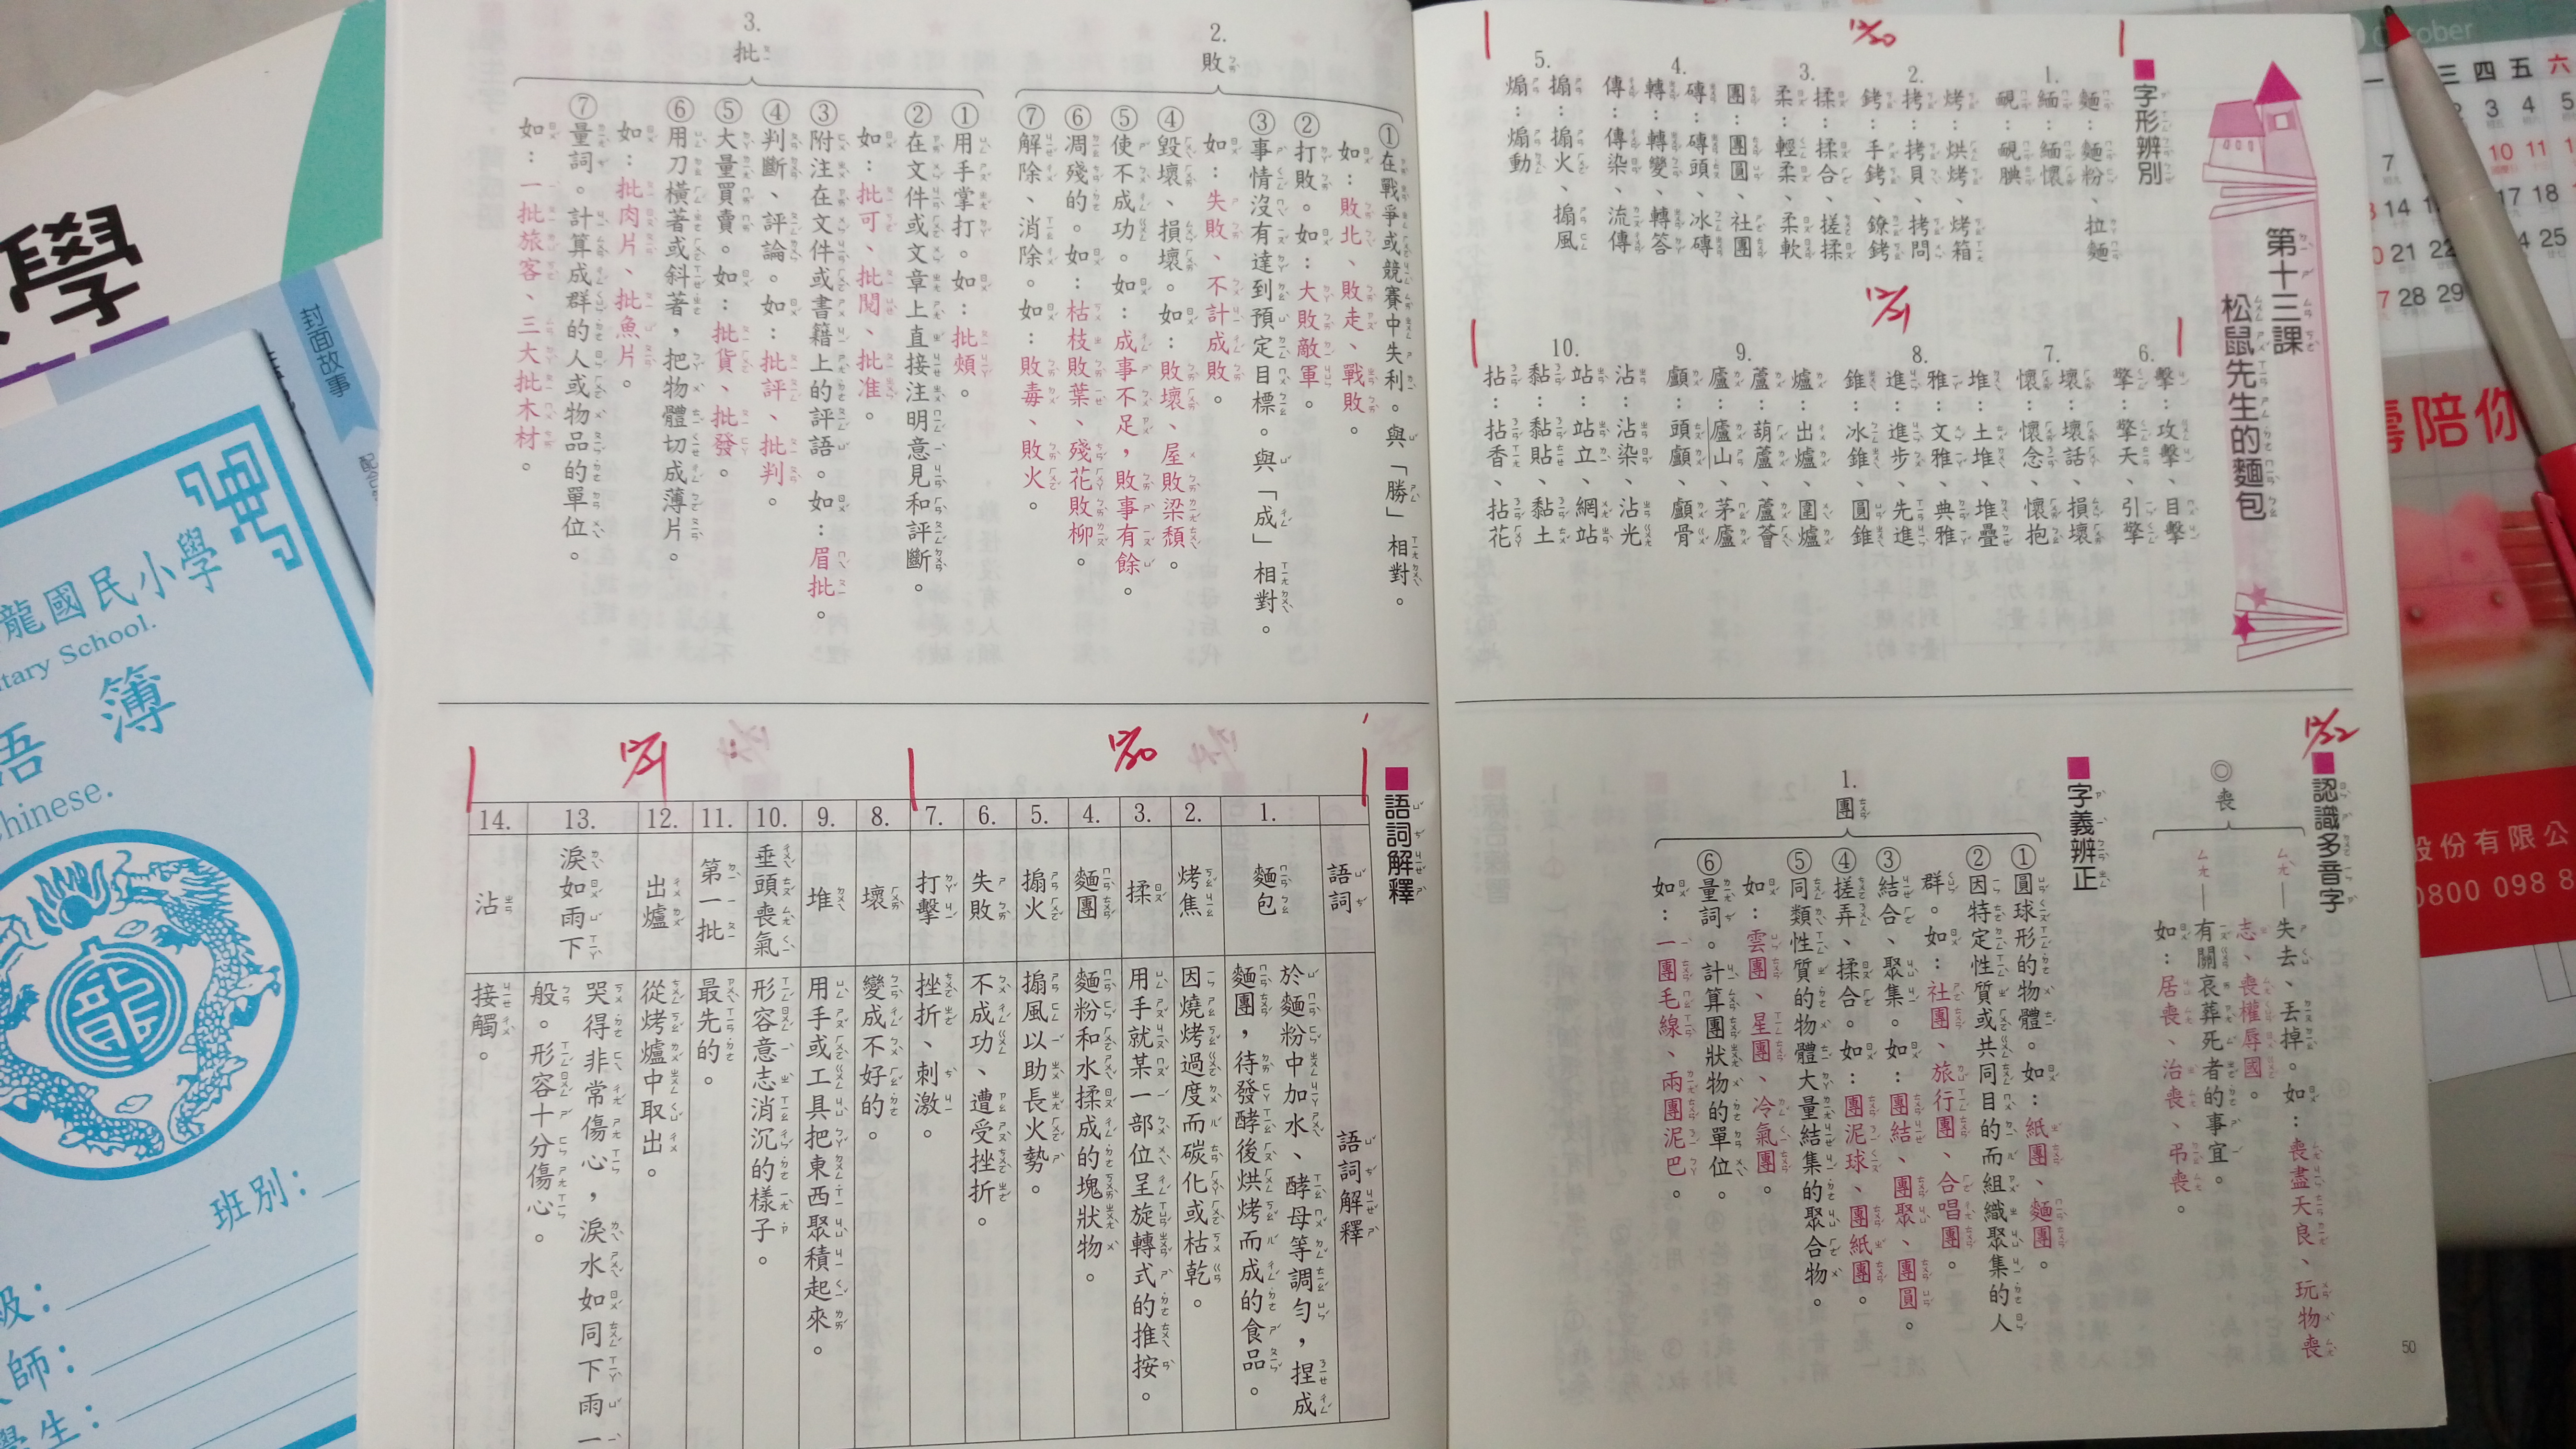 第十三課
松鼠先生的麵包
字形辨別
12/20
1.
麵：麵粉、拉麵
緬：緬懷
靦：靦腆
2.
烤：烘烤、烤箱
拷：拷貝、拷問
銬：手銬、鐐銬
3.
揉：揉合、搓揉
柔：輕柔、柔軟
4.
團：團圓、社團
磚：磚頭、冰磚
轉：轉變、轉答
傳：傳染、流傳
5.
搧：搧火、搧風
煽：煽動
12/21
6.
擊：攻擊、目擊
擎：擎天、引擎
7.
壞：壞話、損壞
懷：懷念、懷抱
8.
堆：土堆、堆疊
雅：文雅、典雅
進：進步、先進
錐：冰錐、圓錐
9.
爐：出爐、圍爐
蘆：葫蘆、蘆薈
廬：廬山、茅廬
顱：頭顱、顱骨
10.
沾：沾染、沾光
站：站立、網站
黏：黏貼、黏土
拈：拈香、拈花
12/22
認識多音字
◎喪
ㄙㄤˋ—失去、丟掉。如：喪盡天良、玩物喪
志、喪權辱國。
ㄙㄤ—有關哀葬死者的事宜。
如：居喪、治喪、弔喪。
字義辨正
1.團
①圓球形的物體。如：紙團、麵團。
②因特定性質或共同目的而組織聚集的人
群。如：社團、旅行團、合唱團。
③結合、聚集。如：團結、團聚、團圓。
④搓弄、揉合。如：團泥球、團紙團。
⑤同類性質的物體大量結集的聚合物。
如：雲團、星團、冷氣團。
⑥量詞。計算團狀物的單位。
如：一團毛線、兩團泥巴。
50
2.敗
①在戰爭或競賽中失利。與「勝」相對。
如：敗北、敗走、戰敗。
②打敗。如：大敗敵軍。
③事情沒有達到預定目標。與「成」相對。
如：失敗、不計成敗。
④毀壞、損壞。如：敗壞、屋敗梁頹。
⑤使不成功。如：成事不足，敗事有餘。
⑥凋殘的。如：枯枝敗葉、殘花敗柳。
⑦解除、消除。如：敗毒、敗火。
3.批
①用手掌打。如：批頰。
②在文件或文章上直接注明意見和評斷。
如：批可、批閱、批准。
③附注在文件或書籍上的評語。如：眉批。
④判斷、評論。如：批評、批判。
⑤大量買賣。如：批貨、批發。
⑥用刀橫著或斜著，把物體切成薄片。
如：批肉片、批魚片。
⑦量詞。計算成群的人或物品的單位。
如：一批旅客、三大批木材。
語詞解釋
12/20
12/21
語詞 語詞解釋
1. 麵包 於麵粉中加水、酵母等調勻，捏成
麵團，待發酵後烘烤而成的食品。
2. 烤焦 因燒烤過度而碳化或枯乾。
3. 揉 用手就某一部位呈旋轉式的推按。
4. 麵團 麵粉和水揉成的塊狀物。
5. 搧火 搧風以助長火勢。
6. 失敗 不成功、遭受挫折。
7. 打擊 挫折、刺激。
8. 壞 變成不好的。
9. 堆 用手或工具把東西聚積起來。
10. 垂頭喪氣 形容意志消沉的樣子。
11. 第一批 最先的。
12. 出爐 從烤爐中取出。
13. 淚如雨下 哭得非常傷心，淚水如同下雨一
般。形容十分傷心。
14. 沾 接觸。
學
封面故事
龍國民小學
tary School.
語 簿
Chinese.
龍
班別：
級：
師：
學生：
October
一 三 四 五 六
陪你
股份有限公
0800 098 8